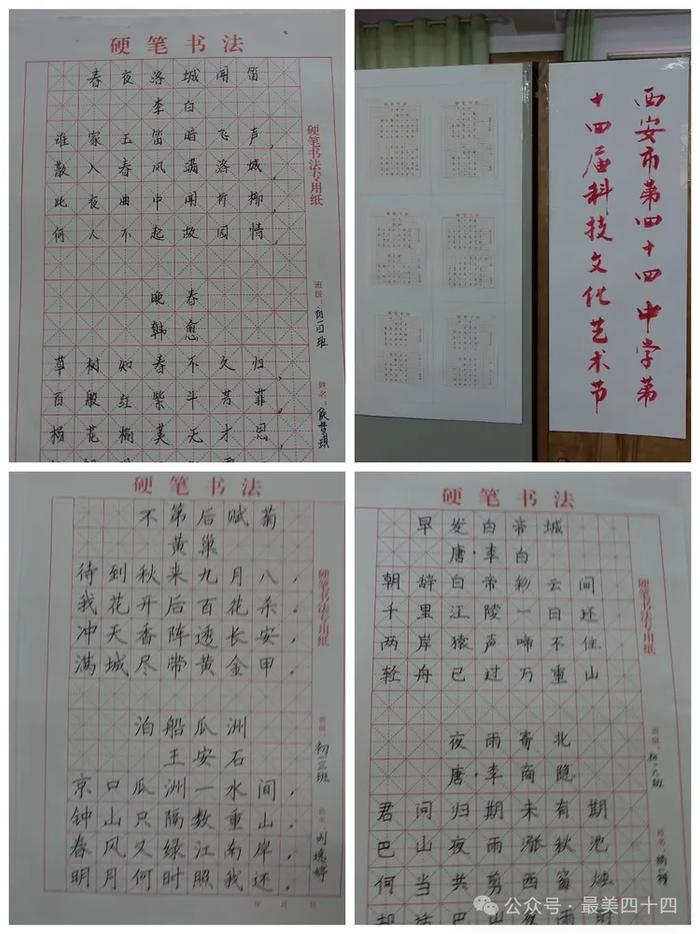 硬笔书法
春夜洛城闻笛
李白
谁家玉笛暗飞声，
散入春风满洛城，
此夜曲中闻折柳，
何人不起故园情，
晚春
韩愈
草树知春不久归，
百般红紫斗芳菲，
杨花榆荚无才思，
硬笔书法专用纸
班级：
姓名：
西安市第四十四中学第
十四届科技文化艺术节
硬笔书法
不第后赋菊
黄巢
待到秋来九月八，
我花开后百花杀，
冲天香阵透长安，
满城尽带黄金甲。
泊船瓜洲
王安石
京口瓜洲一水间，
钟山只隔数重山，
春风又绿江南岸，
明月何时照我还。
硬笔书法专用纸
初一三班
硬笔书法
早发白帝城
唐·李白
朝辞白帝彩云间
千里江陵一日还
两岸猿声啼不住
轻舟已过万重山
夜雨寄北
唐·李商隐
君问归期未有期
巴山夜雨涨秋池
何当共剪西窗烛
却话巴山夜雨时
硬笔书法专用纸
公众号·最美四十四